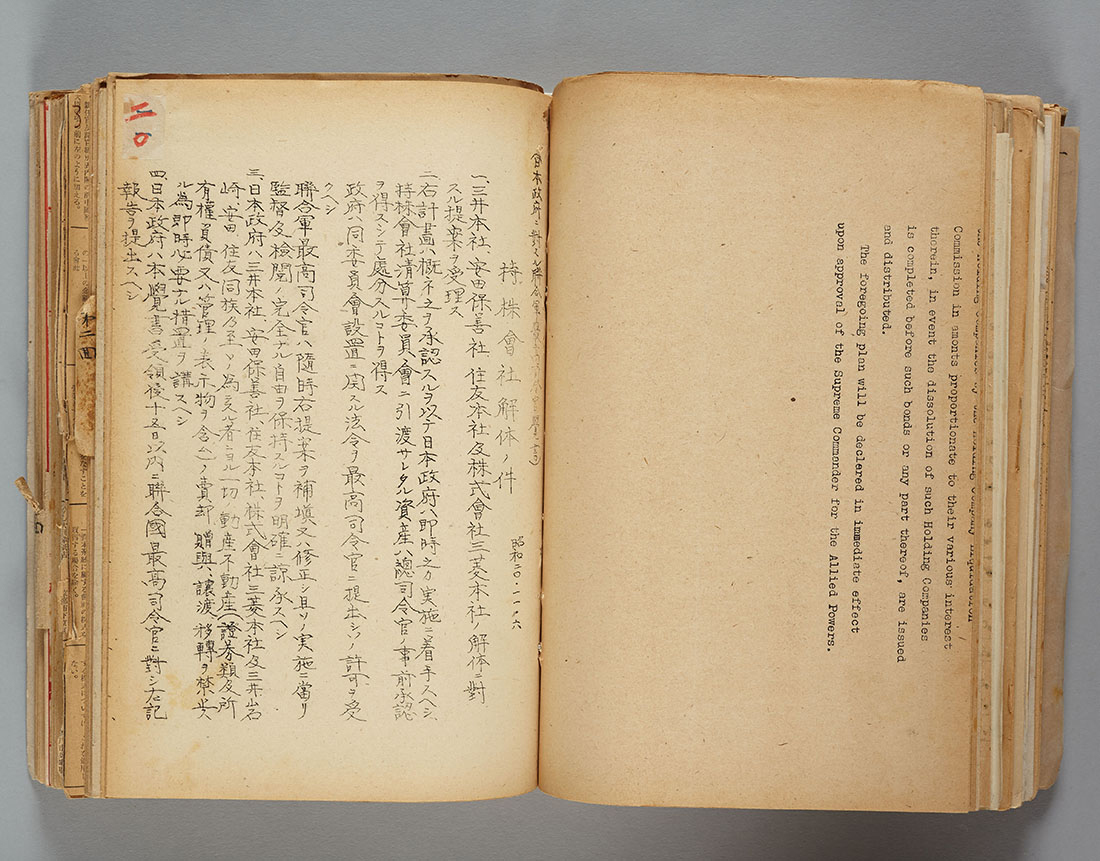 Commission in amonts proportionate to their various interest
therein, in event the dissolution of such Holding Companies
is completed before such bonds or any part thereof, are issued
and distributed.
The foregoing plan will be declared in immediate effect
upon approval of the Supreme Commander for the Allied Powers.
二〇
持株會社解体ノ件
昭和二〇・一一・六
一、三井本社、安田保善社、住友本社及株式會社三菱本社ノ解体ニ對
スル提案ヲ受理ス
二、右計畫ハ概ネ之ヲ承認スルヲ以テ日本政府ハ即時之ガ実施ニ着手スヘシ
持株會社清算委員會ニ引渡サレタル資産ハ總司令官ノ事前承認
ヲ得スシテ處分スルコトヲ得ス
政府ハ同委員會設置ニ関スル法令ヲ最高司令官ニ提出シソノ許可ヲ受
クヘシ
聯合軍最高司令官ハ隨時右提案ヲ補塡又ハ修正シ且ソノ実施ニ當リ
監督及檢閲ノ完全ナル自由ヲ保持スルコトヲ明確ニ諒承スヘシ
三、日本政府ハ三井本社、安田保善社、住友本社、株式會社三菱本社及三井岩
崎、安田、住友同族乃至ソノ為ニスル者ニヨル一切ノ動産不動産(證券類及所
有權負債又ハ管理ノ表示物ヲ含ム)ノ賣却、贈與、讓渡移轉ヲ禁止ス
ル為即時必要ナル措置ヲ講スヘシ
四、日本政府ハ本覺書受領後十五日以内ニ聯合國最高司令官ニ對シ左記
報告ヲ提出スヘシ